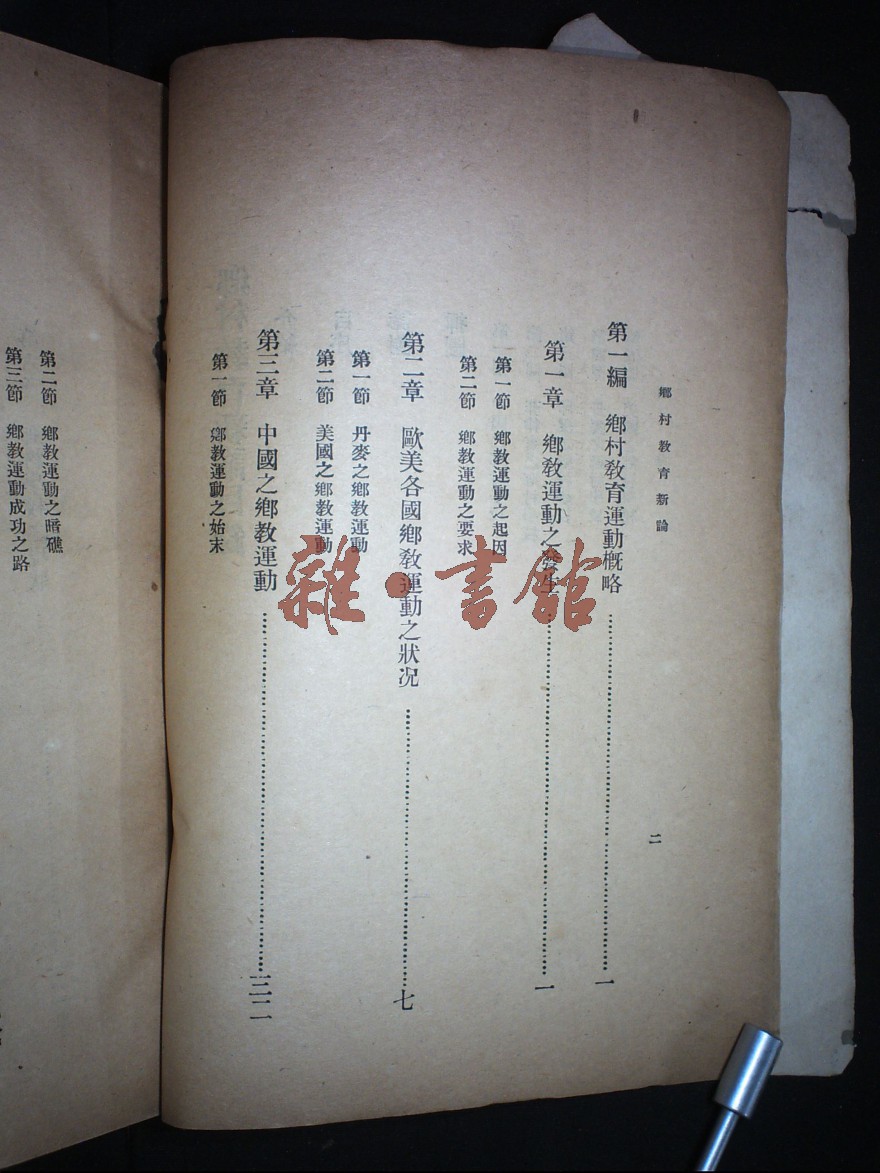 鄉村教育新論
二
第一編 鄉村教育運動概略 一
第一章 鄉教運動之發生 一
第一節 鄉教運動之起因
第二節 鄉教運動之要求
第二章 歐美各國鄉教運動之狀况 七
第一節 丹麥之鄉教運動
第二節 美國之鄉教運動
第三章 中國之鄉教運動 三二
第一節 鄉教運動之始末
第二節 鄉教運動之暗礁
第三節 鄉教運動成功之路
雜·書館